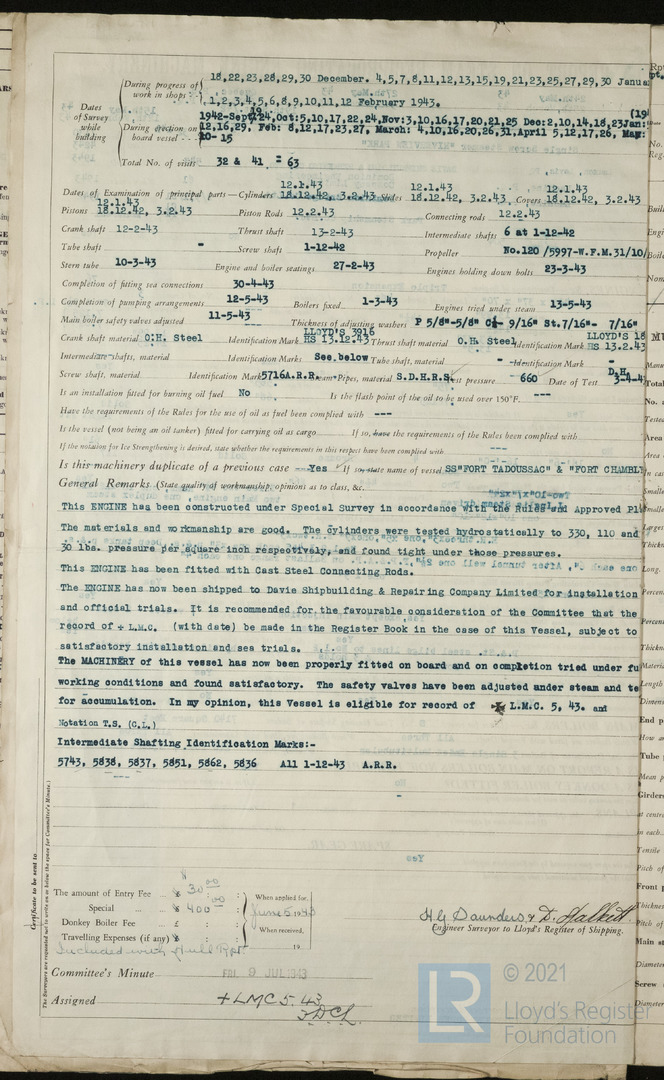 18,22,23,28,29,30 December. 4,5,7,8,11,12,13,15,19,21,23,25,27,29,30 Janua
During progress of work in shops
1,2,3,4,5,6,8,9,10,11,12 February 1943.
Dates of Survey while building
1942-Sept 24, Oct:5,10,17,22,24, Nov:3,10,16,17,20,21,25 Dec:2,10,14,18,23 Jan:
During erection on board vessel
12,16,29. Feb: 8,12,17,23,27, March: 4,10,16,20,26,31, April 5,12,17,26, May:
10-15
Total No. of visits 32 & 41 = 63
12.1.43 12.1.43 12.1.43
Dates of Examination of principal parts—Cylinders 18.12.42, 3.2.43 Slides 18.12.42, 3.2.43 Covers 18.12.42, 3.2.43
12.1.43
Pistons 18.12.42, 3.2.43 Piston Rods 12.2.43 Connecting rods 12.2.43
Crank shaft 12-2-43 Thrust shaft 13-2-43 Intermediate shafts 6 at 1-12-42
Tube shaft - Screw shaft 1-12-42 Propeller No.120/5997-W.F.M.31/10/
Stern tube 10-3-43 Engine and boiler seatings 27-2-43 Engines holding down bolts 23-3-43
Completion of fitting sea connections 30-4-43
Completion of pumping arrangements 12-5-43 Boilers fixed 1-3-43 Engines tried under steam 13-5-43
Main boiler safety valves adjusted 11-5-43 Thickness of adjusting washers P 5/8"-5/8" C 9/16" St.7/16"- 7/16"
LLOYD'S 3916 LLOYD'S 18
Crank shaft material O.H. Steel Identification Mark HS 13.12.43 Thrust shaft material O.H. Steel Identification Mark HS 13.2.43
Intermediate shafts, material Identification Marks See below Tube shaft, material - Identification Mark -
D.H.
Screw shaft, material Identification Mark 5716A.R.R. Steam Pipes, material S.D.H.R.S. Test pressure 660 Date of Test 3-4-4
Is an installation fitted for burning oil fuel No Is the flash point of the oil to be used over 150°F. ---
Have the requirements of the Rules for the use of oil as fuel been complied with ---
Is the vessel (not being an oil tanker) fitted for carrying oil as cargo If so, have the requirements of the Rules been complied with
If the notation for Ice Strengthening is desired, state whether the requirements in this respect have been complied with. ---
Is this machinery duplicate of a previous case Yes If so, state name of vessel SS"FORT TADOUSSAC" & "FORT CHAMBL
General Remarks (State quality of workmanship, opinions as to class, &c.
This ENGINE has been constructed under Special Survey in accordance with the Rules and Approved Pl
The materials and workmanship are good. The cylinders were tested hydrostatically to 330, 110 and
30 lbs. pressure per square inch respectively, and found tight under those pressures.
This ENGINE has been fitted with Cast Steel Connecting Rods.
The ENGINE has now been shipped to Davie Shipbuilding & Repairing Company Limited for installation
and official trials. It is recommended for the favourable consideration of the Committee that the
record of + L.M.C. (with date) be made in the Register Book in the case of this Vessel, subject to
satisfactory installation and sea trials.
The MACHINERY of this vessel has now been properly fitted on board and on completion tried under fu
working conditions and found satisfactory. The safety valves have been adjusted under steam and te
for accumulation. In my opinion, this Vessel is eligible for record of + L.M.C. 5, 43. and
Notation T.S. (C.L.)
Intermediate Shafting Identification Marks:-
5743, 5838, 5837, 5851, 5862, 5836 All 1-12-43 A.R.R.
Certificate to be sent to
(The Surveyors are requested not to write on or below the space for Committee's Minute.)
The amount of Entry Fee $ 30.00
Special $ 400.00
Donkey Boiler Fee £
Travelling Expenses (if any) $
When applied for,
June 5 1943
When received,
19
Included with Hull Rpt
H.G. Saunders & D. Halkett
Engineer Surveyor to Lloyd's Register of Shipping.
Committee's Minute
Assigned +LMC 5.43
© 2021
LR
Lloyd's Register
Foundation